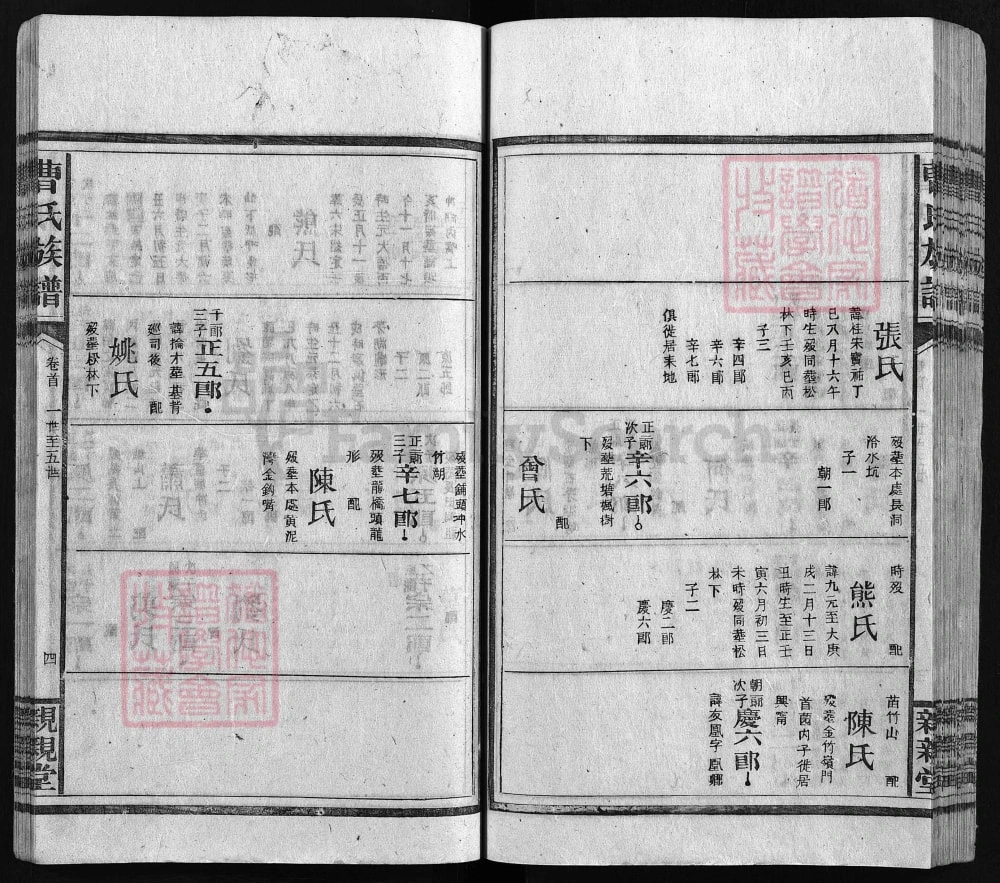 張氏
諱柱朱寶祐丁
巳八月十六午
時生歿同塟松
林下壬亥巳丙
子三
辛四郎
辛六郎
辛七郎
俱徙居耒地
歿塟本處長洞
冷水坑
子一
朝一郎
正郎次子辛六郎
歿塟荒塘楓樹
下
配
曾氏
時歿
配
熊氏
諱九元至大庚
戌二月十三日
丑時生至正壬
寅六月初三日
未時歿同塟松
林下
子二
慶二郎
慶六郎
苗竹山
配
陳氏
歿塟金竹嶺門
首茵内子徙居
興甯
朝郎次子慶六郎
諱亥鳳字鳳鄉
曹氏族譜
卷首
一世至五世
四
親親堂
千郎三子正五郎
諱掄才塟基背
廵司後
配
姚氏
歿塟松林下
歿塟鋪頭坤水
竹湖
正郎三子辛七郎
歿塟龍橋頭龍
形
配
陳氏
歿塟本處黄泥
灣金鈎嘴
FamilySearch